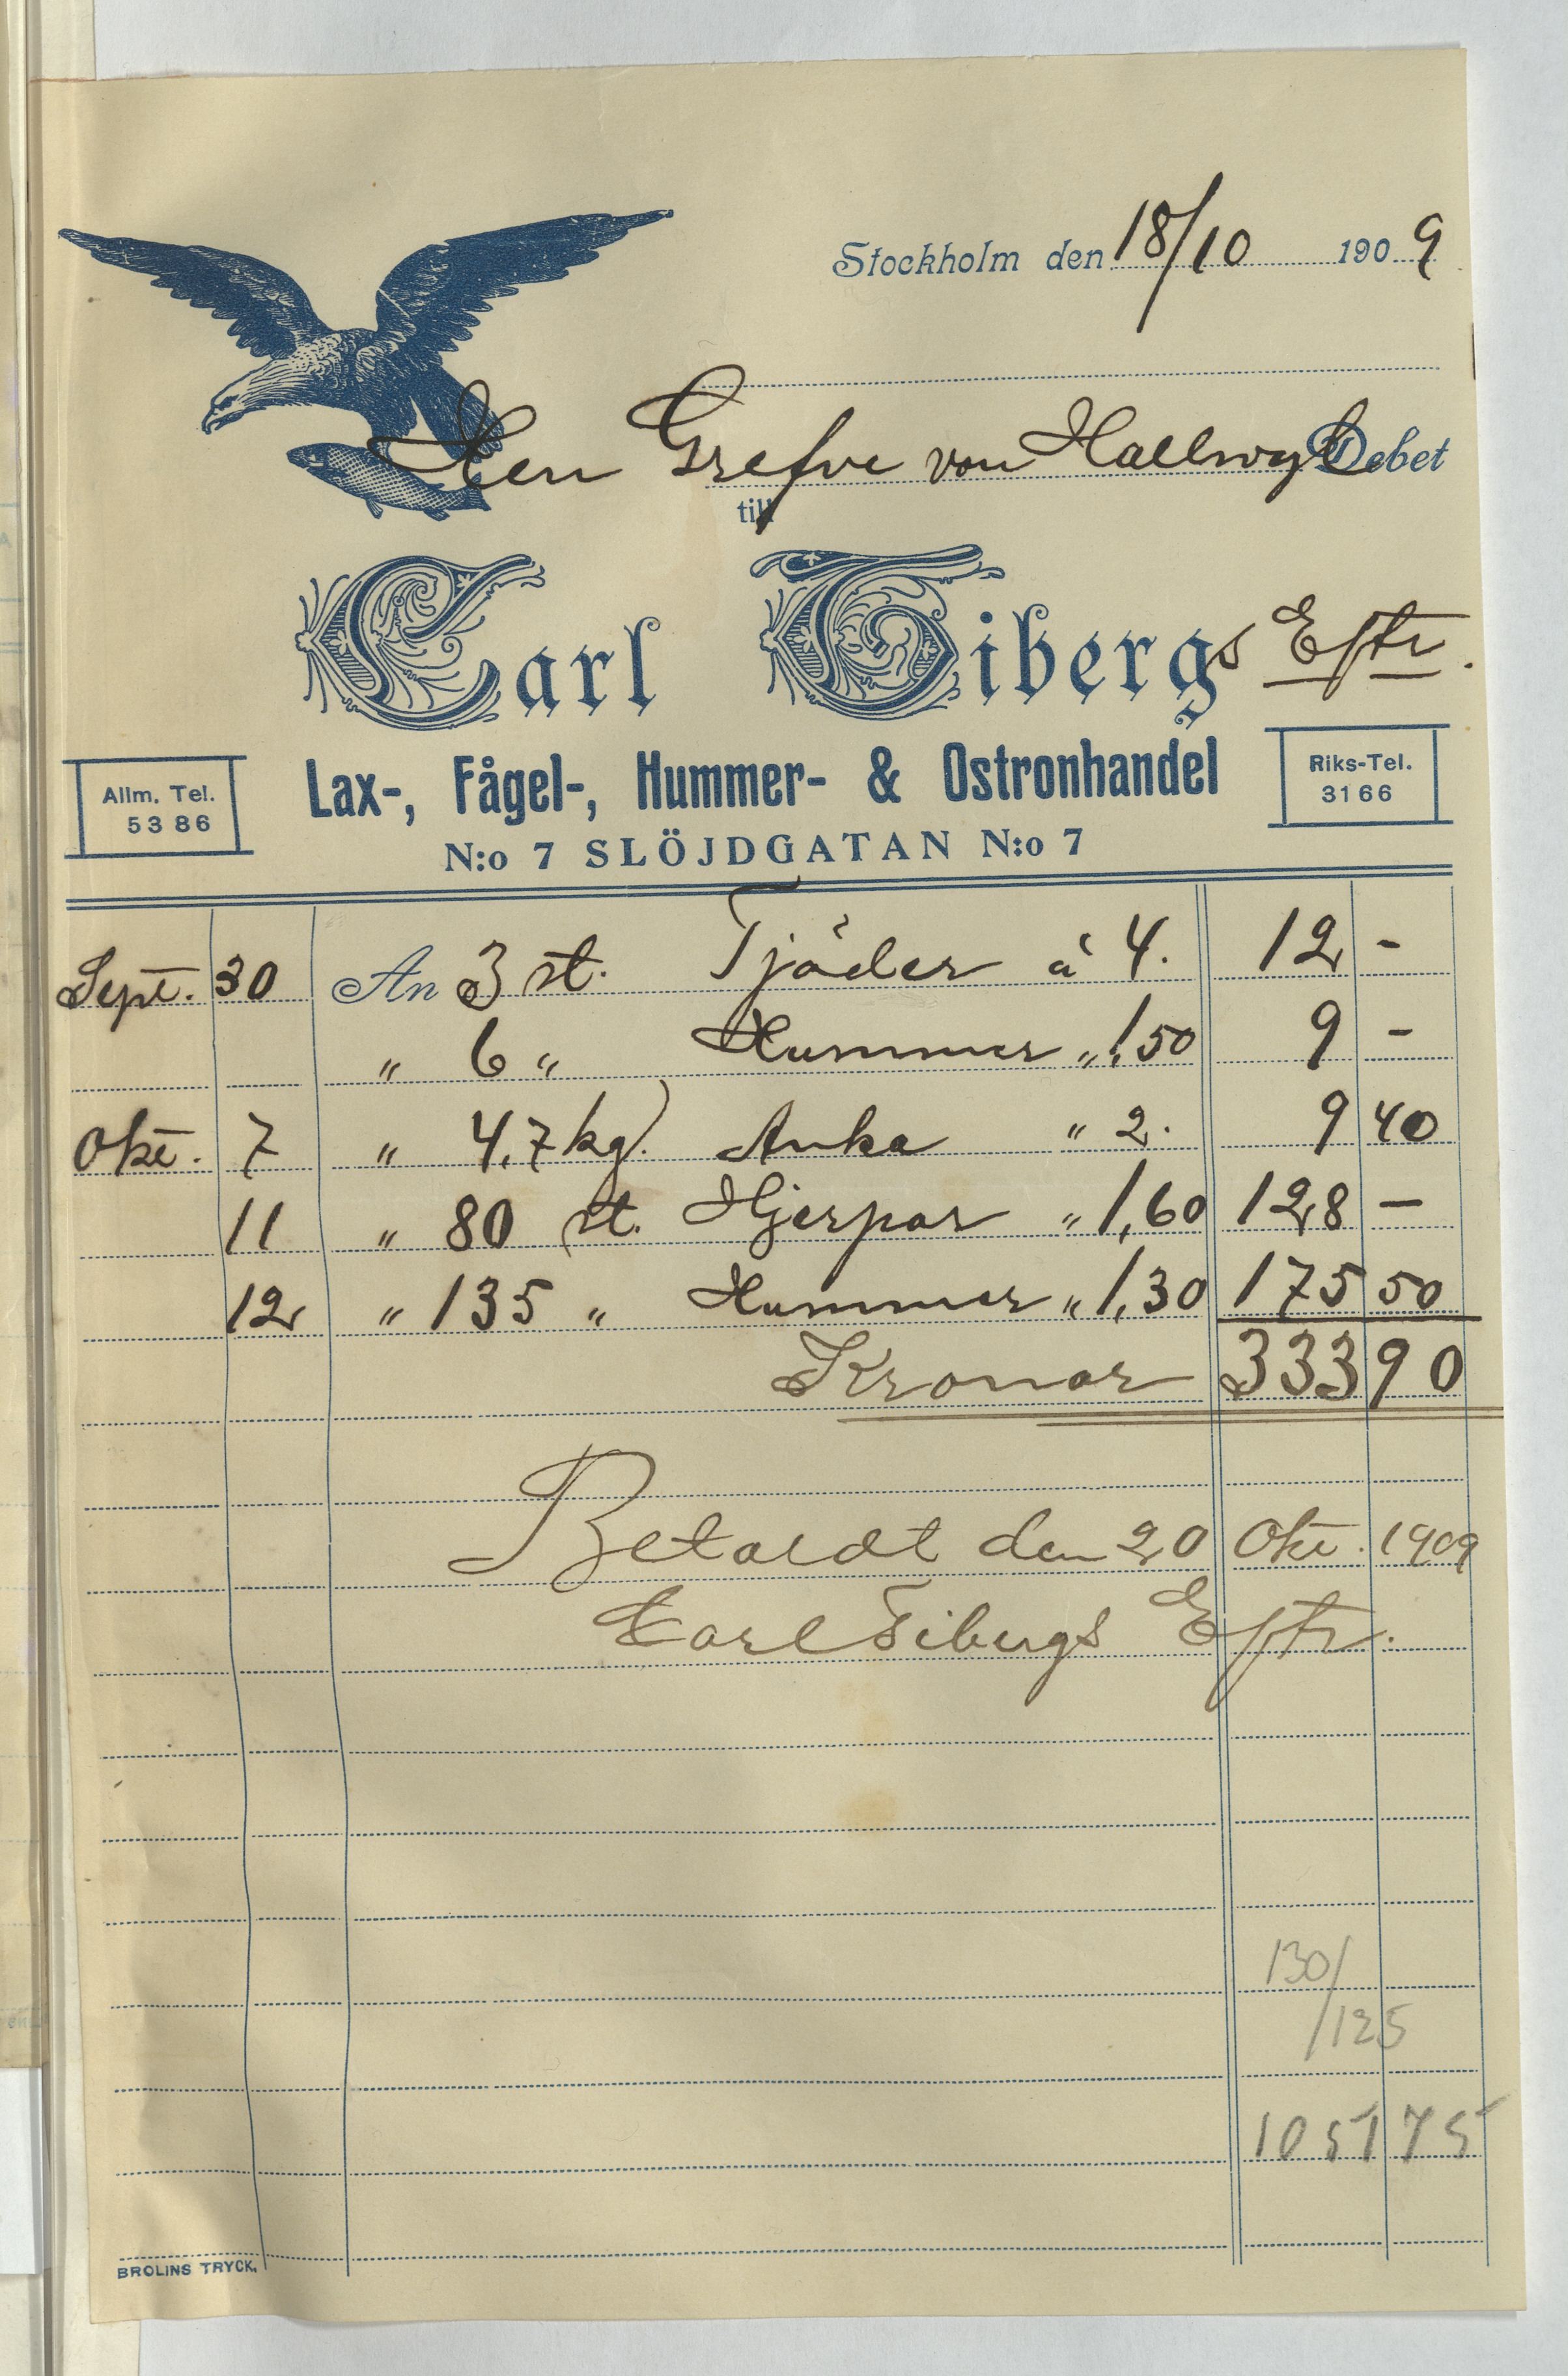 Stockholm den 18/10 1909
Herr Grefve von Hallwyl Debet
till
Carl Tibergs Eftr.
Allm. Tel. 5386
Lax-, Fågel-, Hummer- & Ostronhandel
Riks-Tel. 3166
N:o 7 SLÖJDGATAN N:o 7
Sept. 30 An 3 st. Tjäder à 4. 12 -
" 6 " Hummer " 1,50 9 -
Okt. 7 " 4,7 kg. Anka " 2. 9 40
11 " 80 st. Hjerpar " 1,60 128 -
12 " 135 " Hummer " 1,30 175 50
Kronor 333 90
Betaldt den 20 Okt. 1909
Carl Tibergs Eftr.
130/
/125
1051 75
BROLINS TRYCK.